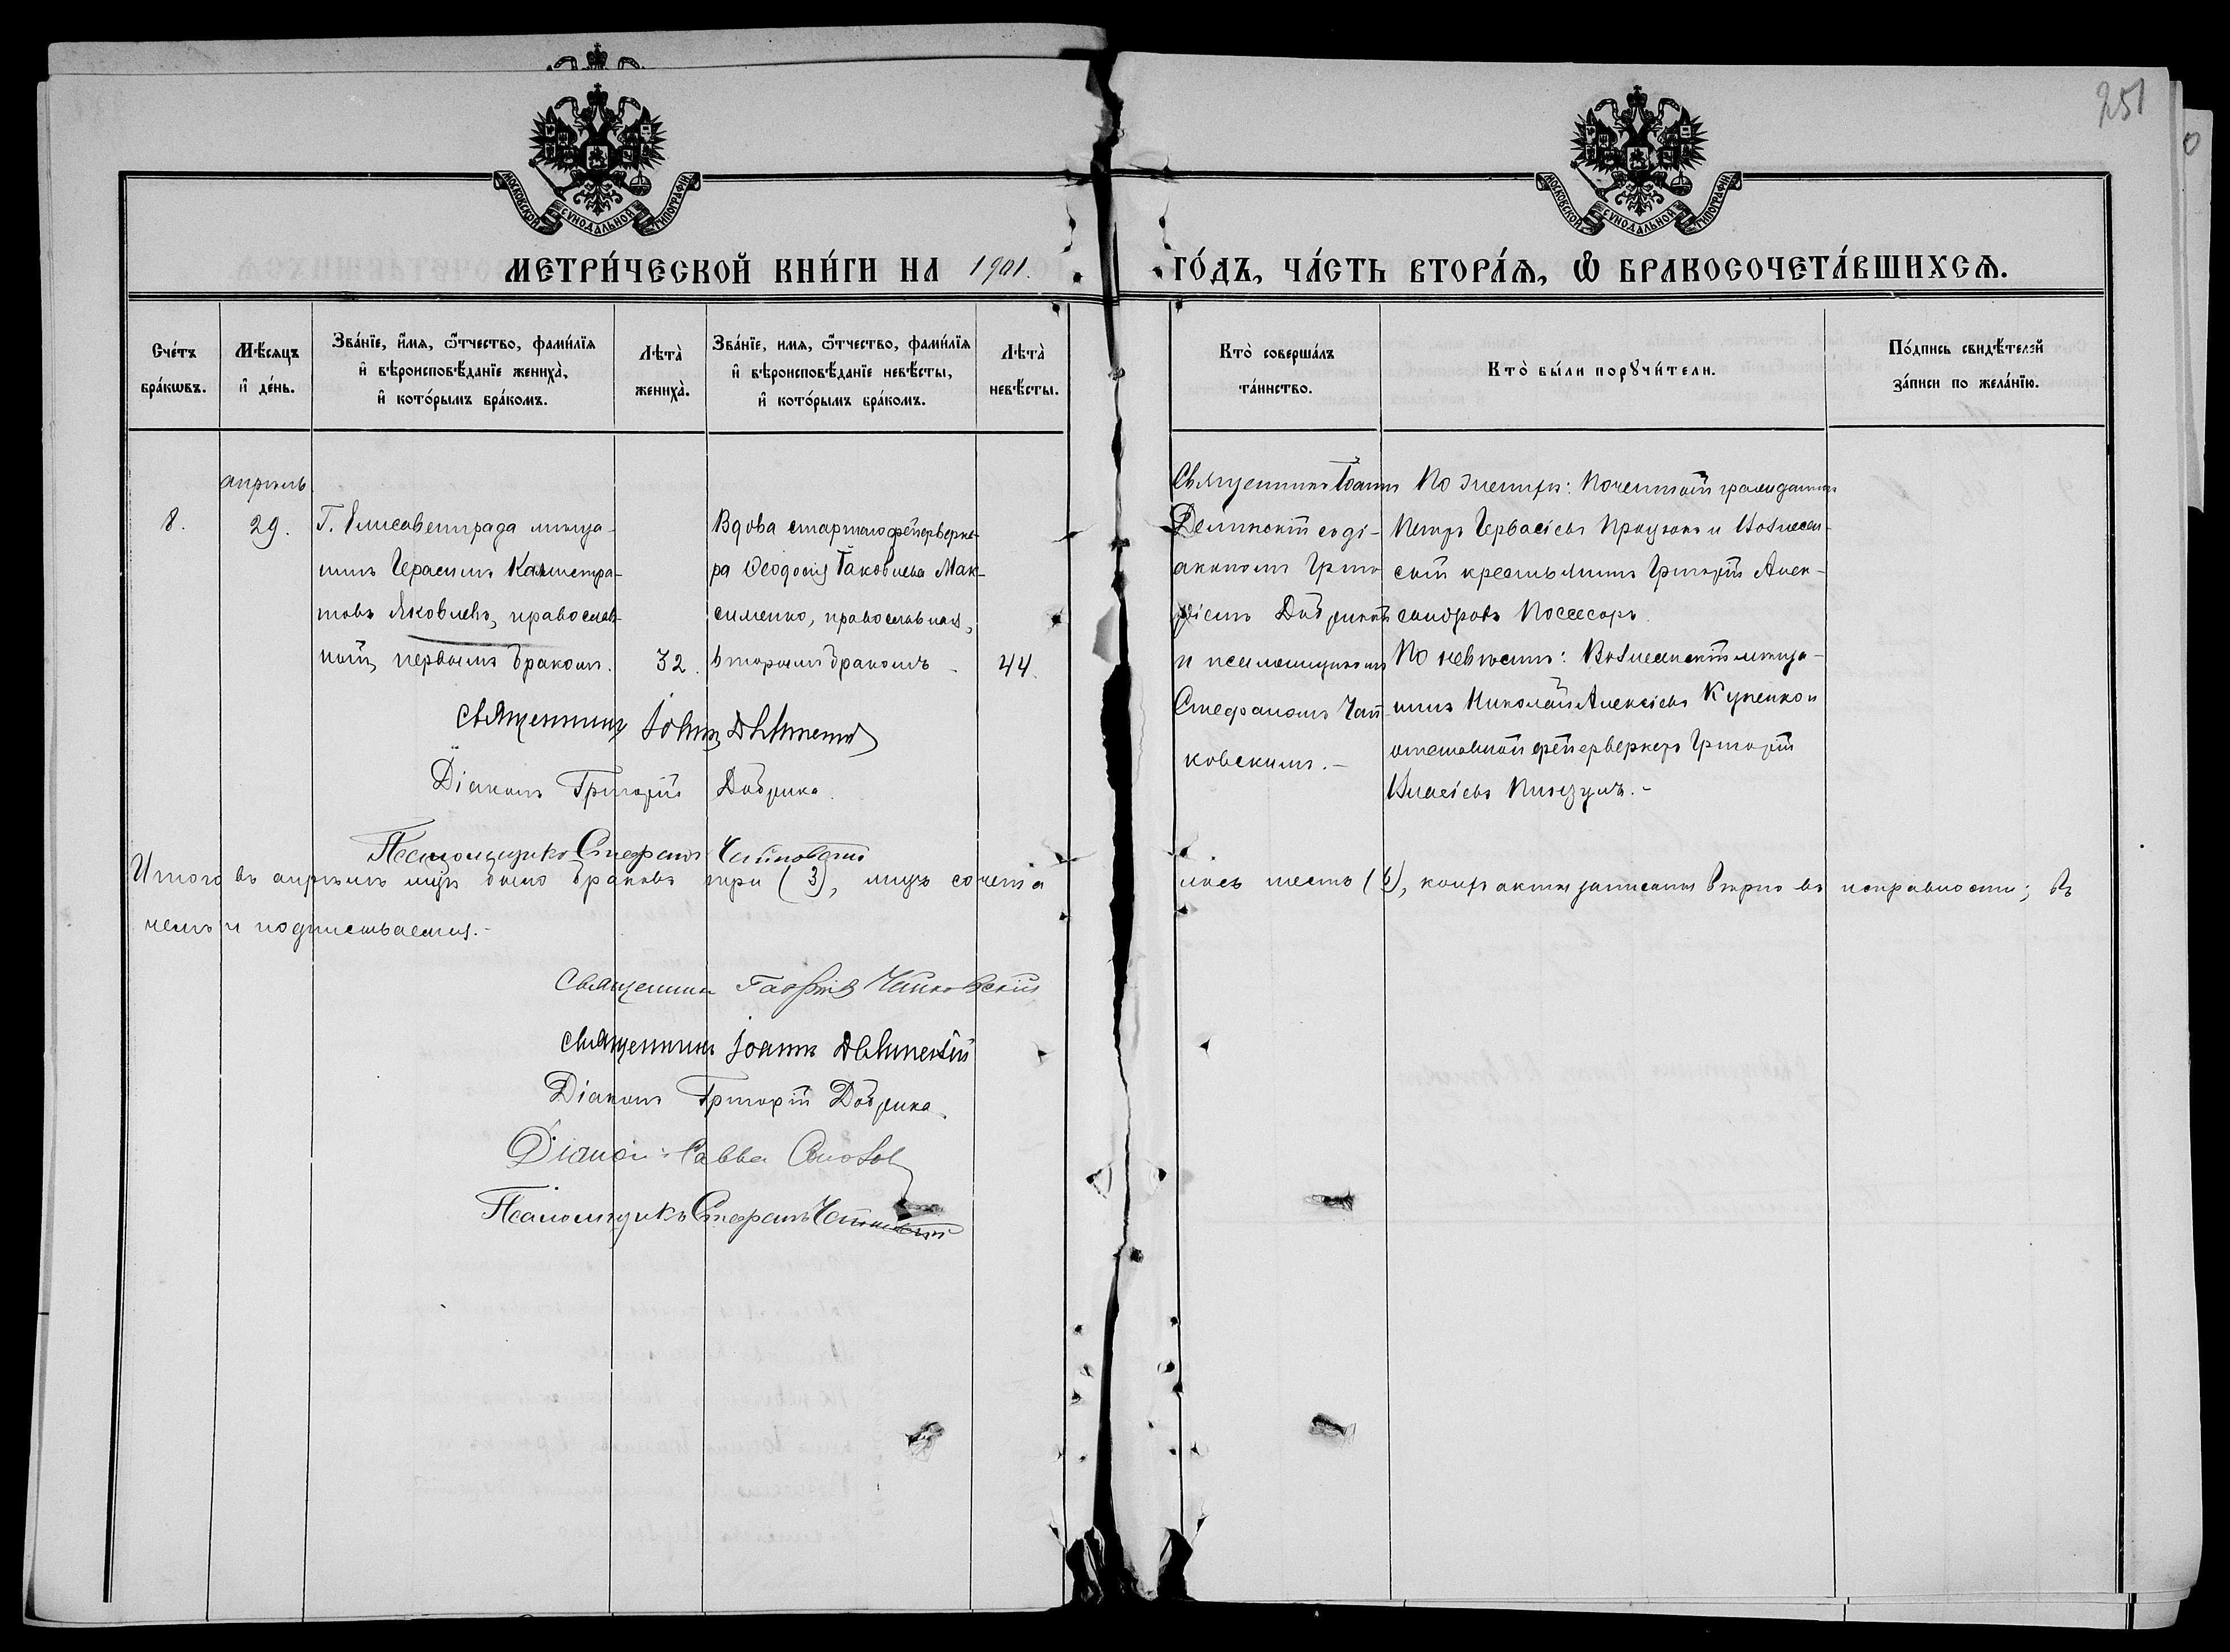 251
МОСКОВСКОЙ СУНОДАЛЬНОЙ ТИПОГРАФІИ
МОСКОВСКОЙ СУНОДАЛЬНОЙ ТИПОГРАФІИ
МЕТРИ́ЧЕСКОЙ КНИ́ГИ НА 1901. ГО́ДЪ, ЧА́СТЬ ВТОРА́Ѧ, Ѿ БРАКОСОЧЕТА́ВШИХСѦ.
Сче́тъ бра́кѡвъ.
Мѣ́сѧцъ и҆ де́нь.
Зва́нїе, и҆́мѧ, ѻ҆́тчество, фами́лїѧ
и҆ вѣроисповѣ́данїе жениха̀,
и҆ кото́рымъ бра́комъ.
Лѣта̀ жениха̀.
Зва́нїе, имѧ, ѻ҆́тчество, фами́лїѧ
и҆ вѣроисповѣ́данїе невѣ́сты,
и҆ кото́рымъ бра́комъ.
Лѣта̀ невѣ́сты.
Кто̀ соверша́лъ
та́инство.
Кто̀ бы́ли порꙋчи́тели.
По́дпись свидѣ́телей
за́писи по жела́нїю.
8.
апрѣль
29.
Г. Елисаветграда мѣща-
нинъ Герасимъ Каллистра-
товъ Яковлевъ, православ-
ный, первымъ бракомъ.
32.
Вдова старшаго фейерверке-
ра Ѳеодосія Іаковлева Мак-
сименко, православная,
вторымъ бракомъ
44.
Священникъ Іоаннъ
съ ді-
акономъ Григо-
ріемъ Добрикой
и псаломщикомъ
Стефаномъ Чай-
ковскимъ.-
По женихѣ: Почетный гражданинъ
Петръ Гервасіевъ и Вознесен-
скій крестьянинъ Григорій Алек-
сандровъ Поссесоръ.
По невѣстѣ: Вознесенскій мѣща-
нинъ Николай Алексіевъ Купенко и
отставной фейерверкеръ Григорій
Власіевъ
Священникъ Іоаннъ
Діаконъ Григорій Добрика.
Псаломщикъ Стефанъ Чайковскій
Итого въ апрѣлѣ мцѣ было браковъ три (3), лицъ сочета лось шесть (6), коихъ акты записаны вѣрно въ исправности; въ
чемъ и подписываемся.-
Священникъ Чайковскій
Священникъ Іоаннъ
Діаконъ Григорій Добрика.
Діаконъ Савва
Псаломщикъ Стефанъ Чайковскій